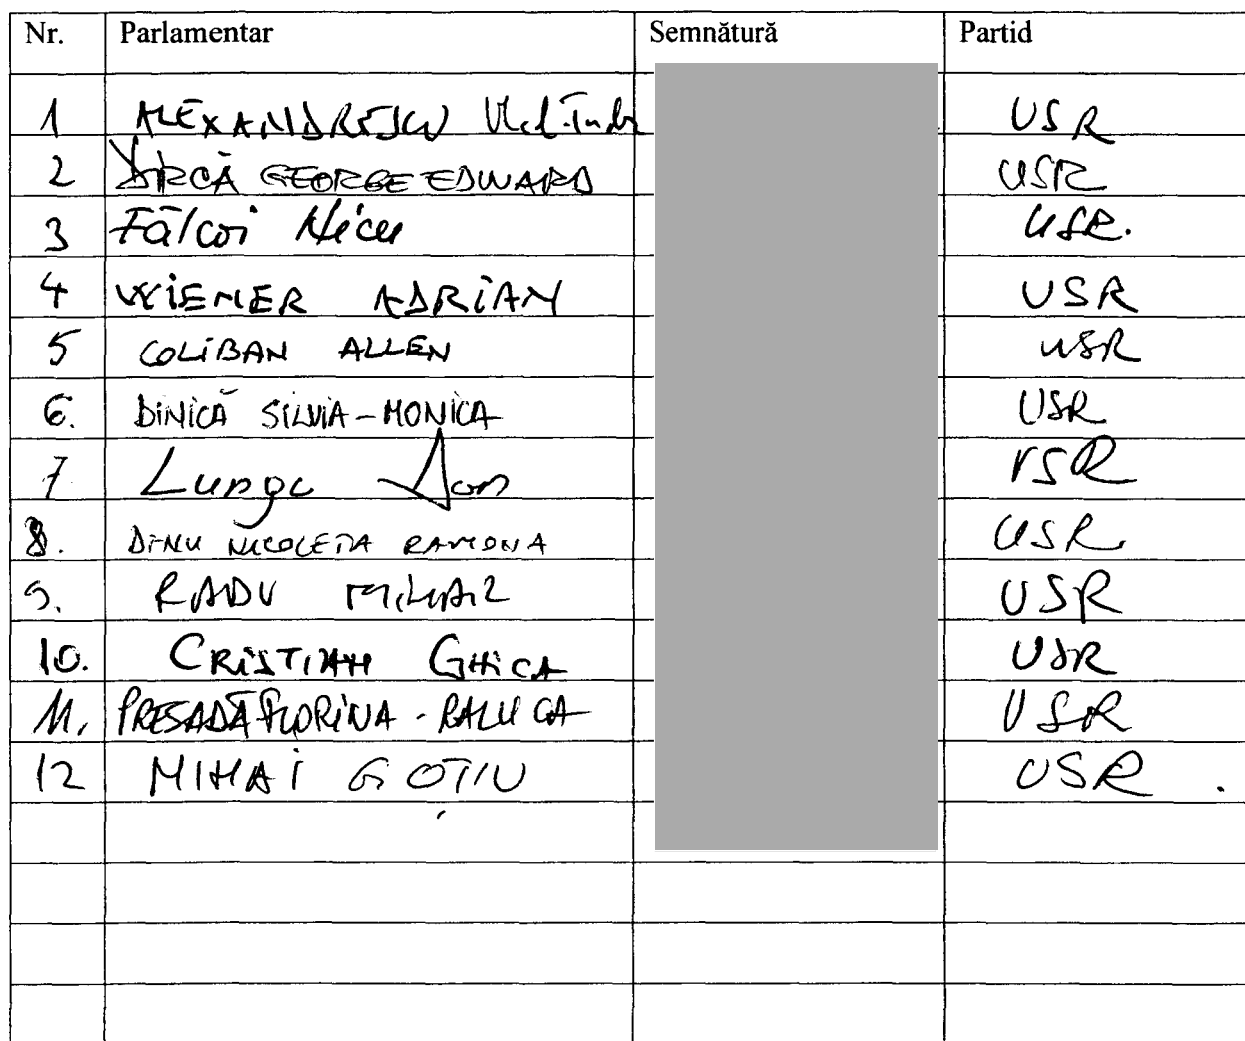 Nr. Parlamentar Semnătură Partid
1 ALEXANDRESCU Vlad-Tudor USR
2 DIRCĂ GEORGE EDWARD USR
3 Fălcoi Nicu USR.
4 WIENER ADRIAN USR
5 COLIBAN ALLEN USR
6. DINICĂ SILVIA-MONICA USR
7 Lungu Dan USR
8. DINU NICOLETA RAMONA USR
9. RADU MIHAIL USR
10. CRISTIAN GHICA USR
11. PRESADĂ FLORINA - RALUCA USR
12 MIHAI GOȚIU USR .